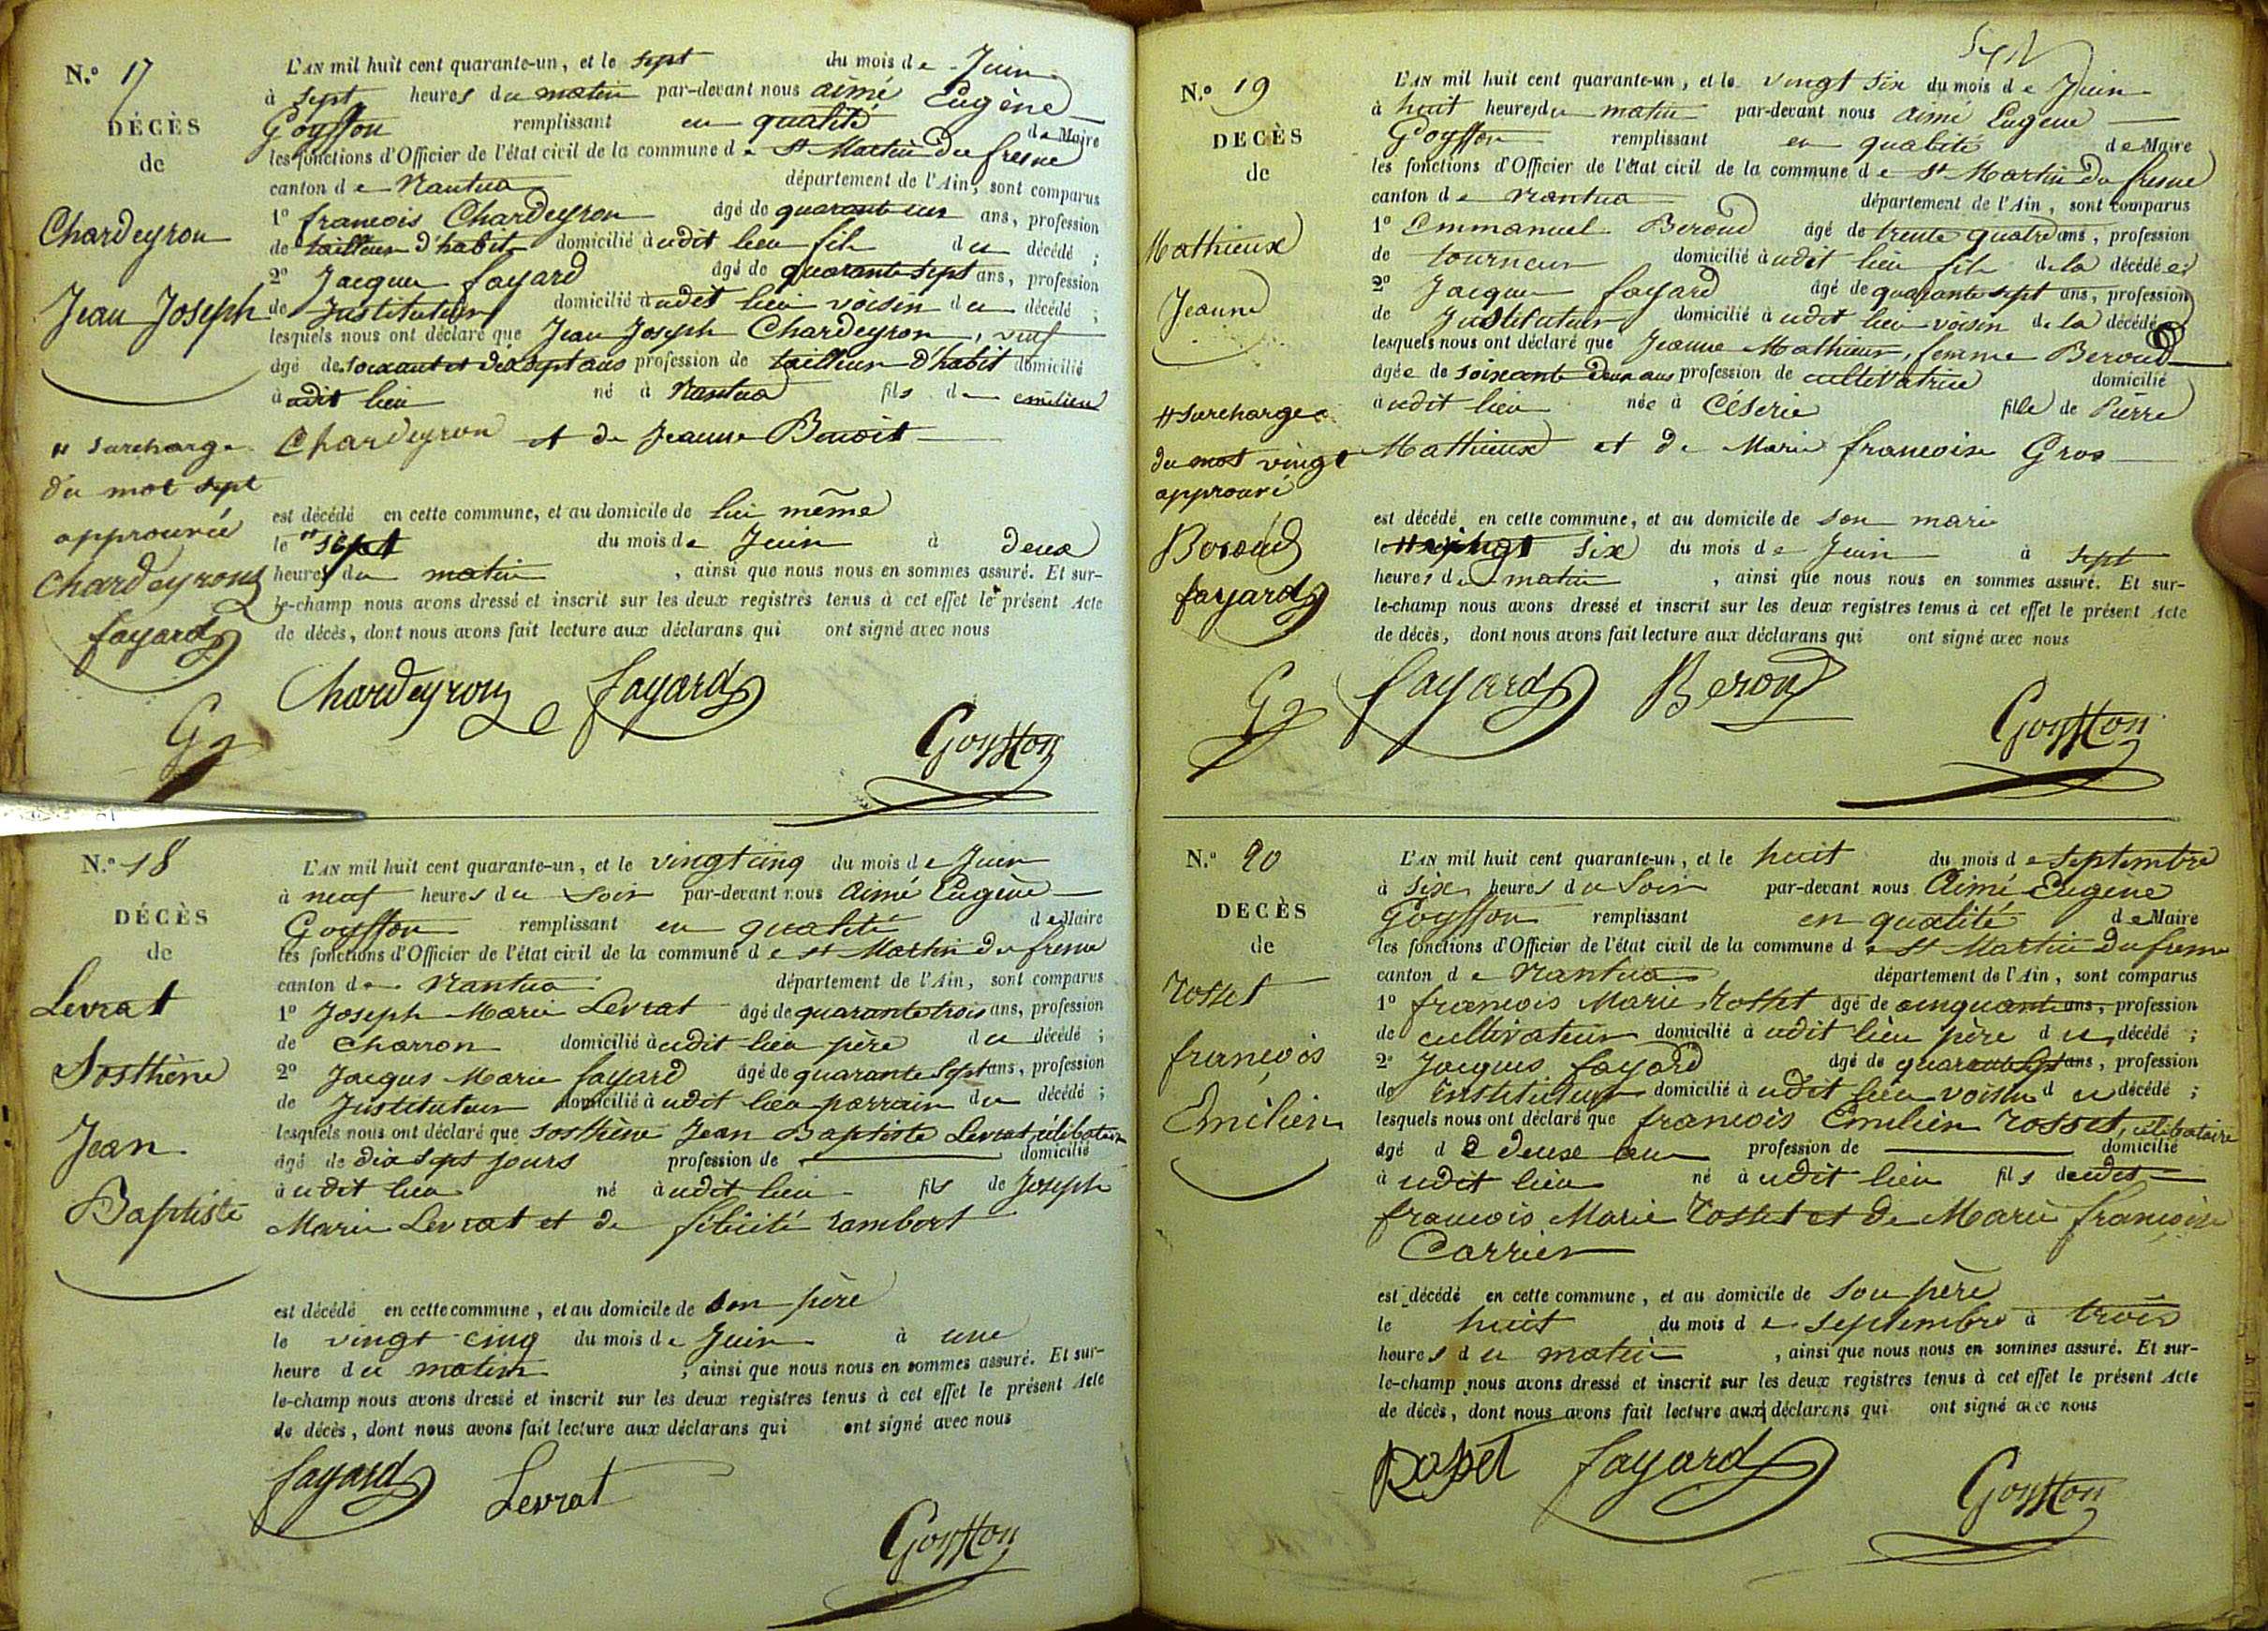 N.º 17
DÉCÈS
de
Chardeyron
Jean Joseph
L'AN mil huit cent quarante-un, et le sept du mois de Juin
à sept heures du matin par-devant nous aimé Eugène
Goyffon remplissant en qualité de Maire
les fonctions d'Officier de l'état civil de la commune de St Martin du fresne
canton de Nantua département de l'Ain, sont comparus
1º francois Chardeyron âgé de quarante un ans, profession
de tailleur d'habit domicilié à udit lieu fils du décédé ;
2º Jacque fayard âgé de quarante sept ans, profession
de Instituteur domicilié à udit lieu voisin du décédé ;
lesquels nous ont déclaré que Jean Joseph Chardeyron, veuf
âgé de soixant et dix sept ans profession de tailleur d'habit domicilié
à udit lieu né à Nantua fils de emilien
Chardeyron et de Jeanne Benoit
est décédé en cette commune, et au domicile de lui même
le " sept du mois de Juin à deux
heures du matin, ainsi que nous nous en sommes assuré. Et sur-
le-champ nous avons dressé et inscrit sur les deux registres tenus à cet effet le présent Acte
de décès, dont nous avons fait lecture aux déclarans qui ont signé avec nous
" surcharge
du mot sept
approuvée
Chardeyron
fayard
G
Chardeyron fayard
Goyffon
N.º 18
DÉCÈS
de
Levrat
Sosthène
Jean
Baptiste
L'AN mil huit cent quarante-un, et le vingt cinq du mois de Juin
à neuf heures du soir par-devant nous Aimé Eugène
Goyffon remplissant en qualité de Maire
les fonctions d'Officier de l'état civil de la commune de st Martin du fresne
canton de Nantua département de l'Ain, sont comparus
1º Joseph Marie Levrat âgé de quarante trois ans, profession
de charron domicilié à udit lieu père du décédé ;
2º Jacques Marie fayard âgé de quarante sept ans, profession
de Instituteur domicilié à udit lieu parrain du décédé ;
lesquels nous ont déclaré que sosthène Jean Baptiste Levrat, célibataire
âgé de dix sept jours profession de domicilié
à udit lieu né à udit lieu fils de Joseph
Marie Levrat et de félicité rambort
est décédé en cette commune, et au domicile de son père
le vingt cinq du mois de Juin à une
heure du matin, ainsi que nous nous en sommes assuré. Et sur-
le-champ nous avons dressé et inscrit sur les deux registres tenus à cet effet le présent Acte
de décès, dont nous avons fait lecture aux déclarans qui ont signé avec nous
fayard Levrat
Goyffon
Sept
N.º 19
DECÈS
de
Mathieux
Jeanne
L'AN mil huit cent quarante-un, et le vingt six du mois de Juin
à huit heures du matin par-devant nous aimé Eugene
Goyffon remplissant en qualité de Maire
les fonctions d'Officier de l'état civil de la commune de St Martin du fresne
canton de Nantua département de l'Ain, sont comparus
1º Emmanuel Beroud âgé de trente quatre ans, profession
de tourneur domicilié à udit lieu fils de la décédée ;
2º Jacque fayard âgé de quarante sept ans, profession
de Instituteur domicilié à udit lieu voisin de la décédée
lesquels nous ont déclaré que Jeanne Mathieux, femme Beroud
âgée de soixante deux ans profession de cultivatrice domicilié
à udit lieu née à Céserie fille de Pierre
Mathieux et de Marie francoise Gros
est décédé en cette commune, et au domicile de son mari
le # vingt six du mois de Juin à sept
heures du matin, ainsi que nous nous en sommes assuré. Et sur-
le-champ nous avons dressé et inscrit sur les deux registres tenus à cet effet le présent Acte
de décès, dont nous avons fait lecture aux déclarans qui ont signé avec nous
# surcharge
du mot vingt
approuvé
Beroud
fayard
G
fayard Beroud
Goyffon
N.º 20
DECÈS
de
rosset
francois
Emilien
L'AN mil huit cent quarante-un, et le huit du mois de septembre
à six heures du soir par-devant nous Aimé Eugene
Goyffon remplissant en qualité de Maire
les fonctions d'Officier de l'état civil de la commune de St Martin du fresne
canton de Nantua département de l'Ain, sont comparus
1º francois Marie rosset âgé de cinquante ans, profession
de cultivateur domicilié à udit lieu père du décédé ;
2º Jacques fayard âgé de quarante sept ans, profession
de instituteur domicilié à udit lieu voisin du décédé ;
lesquels nous ont déclaré que francois Emilien rosset, célibataire
âgé de deux ans profession de domicilié
à udit lieu né à udit lieu fils deudit
francois Marie rosset et de Marie francoise
Carrier
est décédé en cette commune, et au domicile de son père
le huit du mois de septembre à trois
heures du matin, ainsi que nous nous en sommes assuré. Et sur-
le-champ nous avons dressé et inscrit sur les deux registres tenus à cet effet le présent Acte
de décès, dont nous avons fait lecture aux déclarans qui ont signé avec nous
Rosset fayard
Goyffon